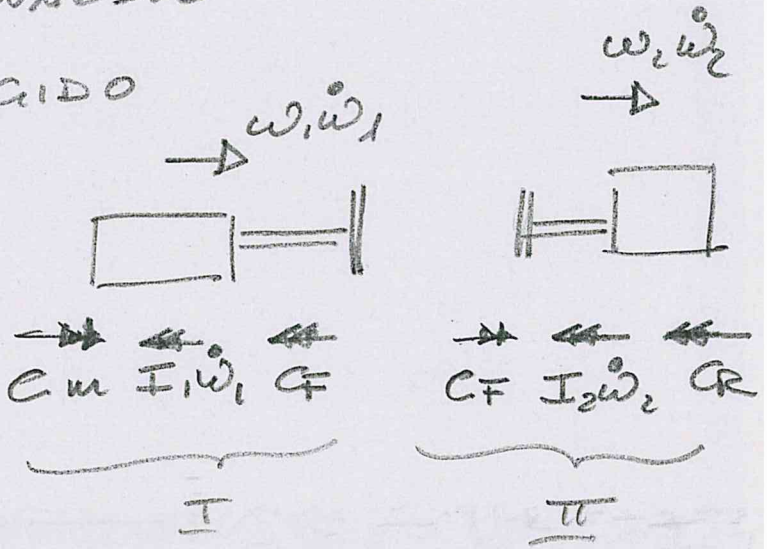 GIDO
ω₁ ω̇₁
ω₂ ω̇₂
Cm I₁ω̇₁ CF
CF I₂ω̇₂ CR
I
II